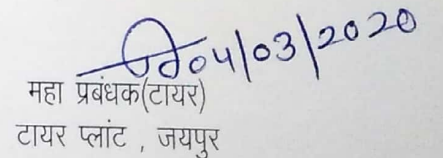 04/03/2020
महा प्रबंधक(टायर)
टायर प्लांट , जयपुर